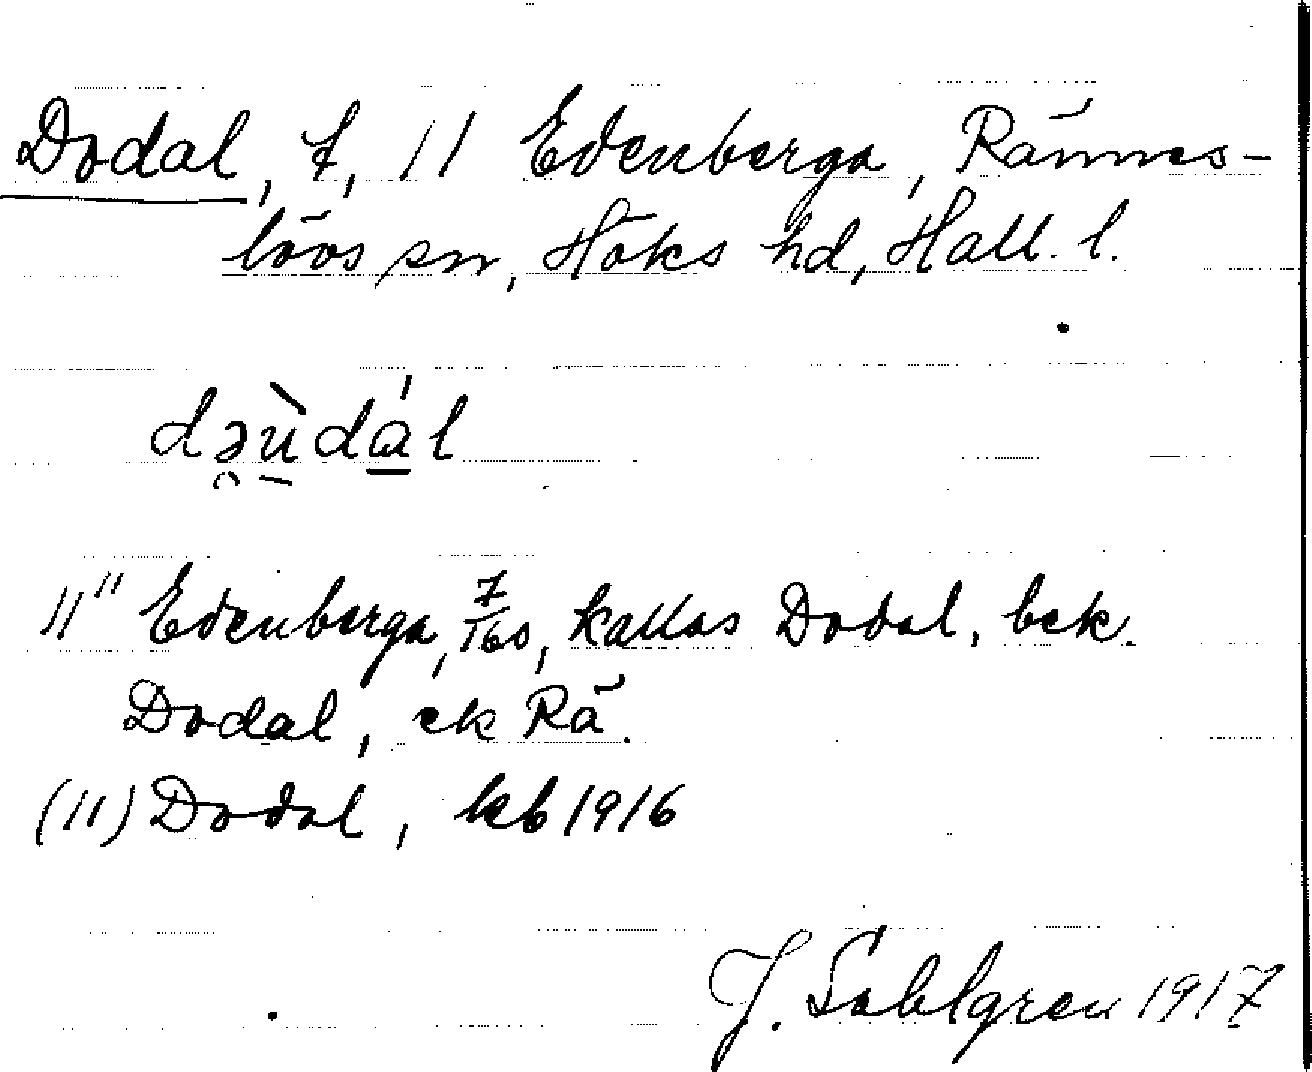 Dodal, t, 11 Edenberga, Rännes-
lövs sn, Höks hd, Hall. l.
də̯ùdál
11" Edenberga, 7/160, kallas Dodal, bek.
Dodal, ek Rä.
(11) Dodal, kb 1916
J. Sahlgren 1917